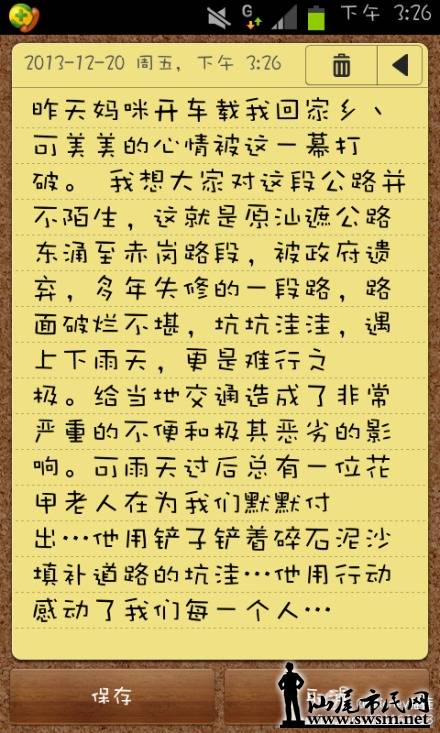 G
下午 3:26
2013-12-20 周五，下午 3:26
昨天妈咪开车载我回家乡、
可美美的心情被这一幕打
破。 我想大家对这段公路并
不陌生，这就是原汕遮公路
东涌至赤岗路段，被政府遗
弃，多年失修的一段路，路
面破烂不堪，坑坑洼洼，遇
上下雨天，更是难行之
极。给当地交通造成了非常
严重的不便和极其恶劣的影
响。可雨天过后总有一位花
甲老人在为我们默默付
出…他用铲子铲着碎石泥沙
填补道路的坑洼…他用行动
感动了我们每一个人…
保存
汕尾市民网
www.swsm.net